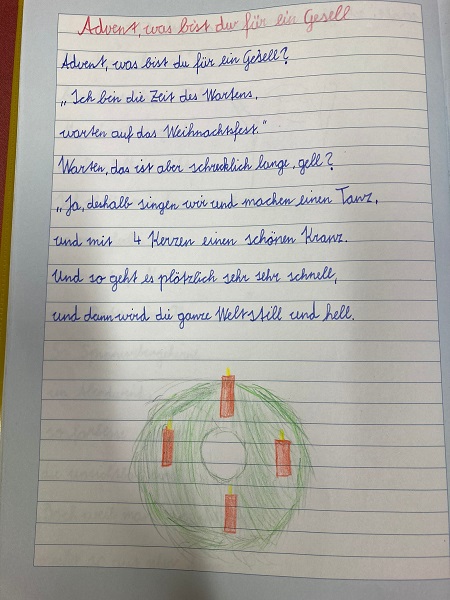 Advent, was bist du für ein Gesell
Advent, was bist du für ein Gesell?
„Ich bin die Zeit des Wartens,
warten auf das Weihnachtsfest."
Warten, das ist aber schrecklich lange, gell?
„Ja, deshalb singen wir und machen einen Tanz,
und mit 4 Kerzen einen schönen Kranz.
Und so geht es plötzlich sehr sehr schnell,
und dann wird die ganze Welt still und hell.